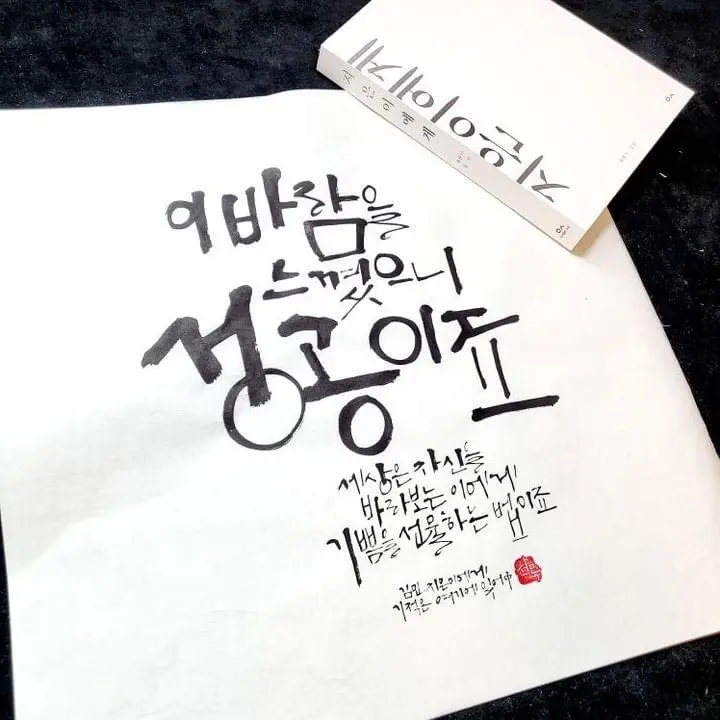 이 바람을
느꼈으니
성공이죠
세상은 자신을
바라보는 이에게
기쁨을 선물하는 법이죠
김민 지은이에게
기적은 여기에 있어 中
지은이에게
지은이에게